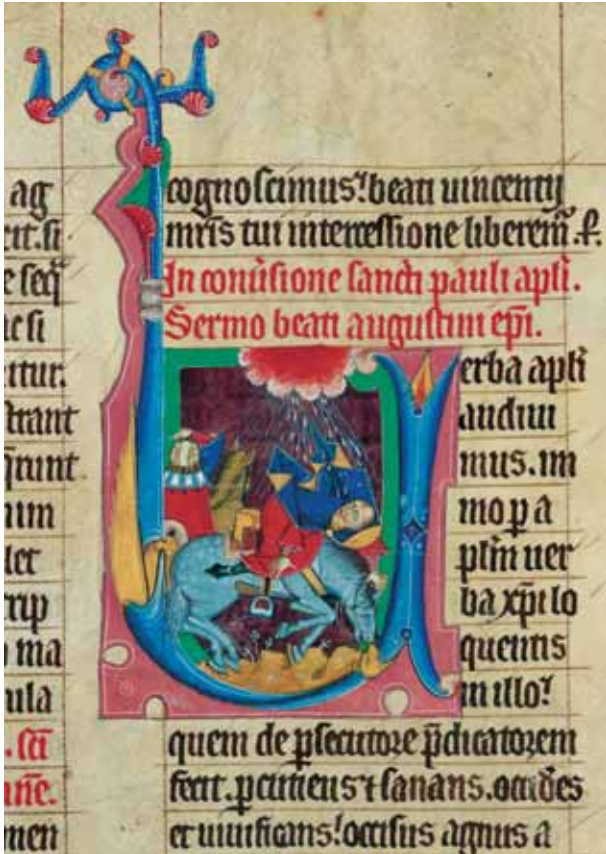 ag
cit. si
e seq̄
ac si
itur.
strant
q̄runt
num
let
crip
o ma
. sc̄i
men
cognoscimus: beati uincentij
mr̄is tui intercessione liberem̄.
In conu̅sione sancti pauli apl̄i.
Sermo beati augustini ep̄i.
Uerba apl̄i
audiui
mus. im
mo ꝑ a
pl̄m uer
ba xp̄i lo
quentis
in illo:
quem de ꝑsecutore p̄dicatorem
fecit. ꝑcutiens ⁊ sanans. occidēs
et uiuificans: occisus agnus a